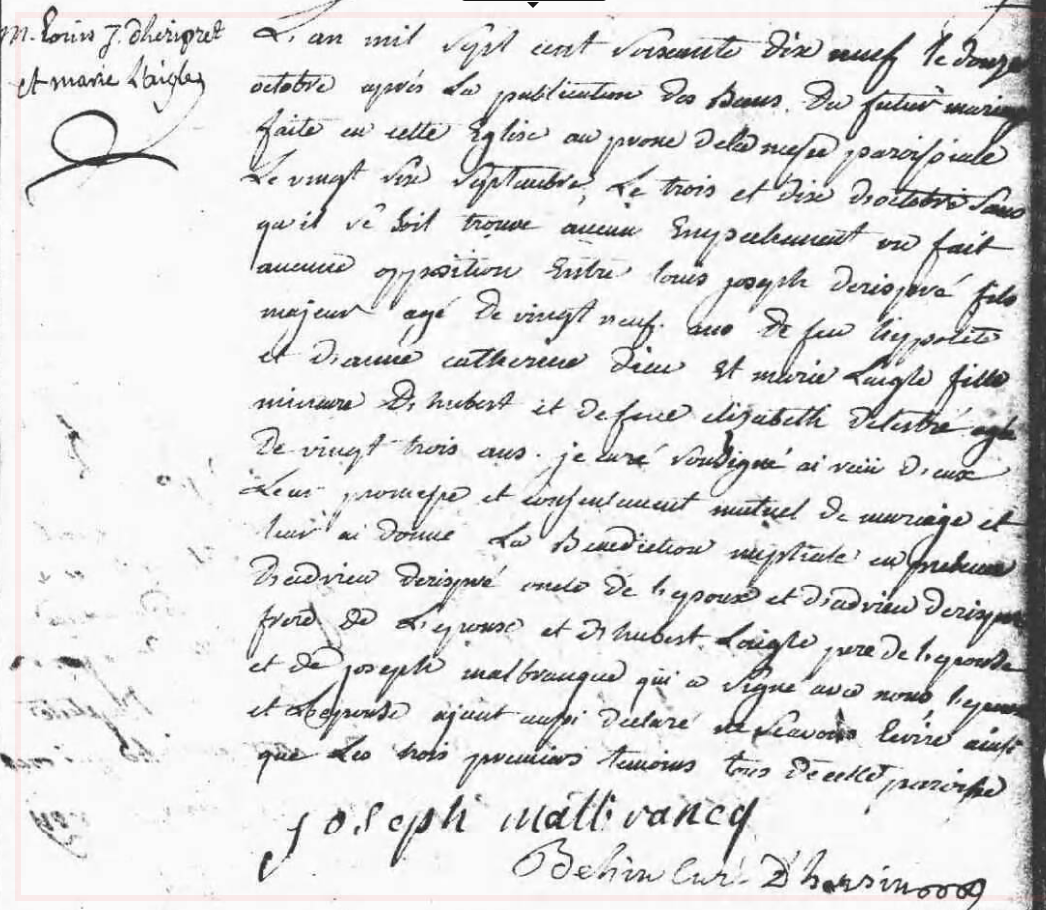 M. Louis J. dherispret
et marie Laigle
L'an mil sept cent soixante dix neuf le douze
octobre après La publication des Bans. Du futur mariage
faite en cette Eglise au prone dela messe paroissiale
Le vingt six septembre, Le trois et dix d'octobre sans
qu'il se soit trouve aucun Empechement ou fait
aucune opposition Entre louis joseph derispré fils
majeur agé De vingt neuf ans de feu hippolite
et d'anne catherine Dieu Et marie Laigle fille
mineure D'hubert et de feue elizabeth delestré agée
De vingt trois ans. je curé soussigné ai recu d'eux
Leur promesse et consentement mutuel de mariage et
leur ai donné La Benediction nuptiale en presence
D'adrien derispré oncle de l'epoux et d'adrien derispré
frere de L'epoux et d'hubert Laigle pere de l'epouse
et de joseph malbranque qui a signé avec nous, l'epoux
et L'epouse ajant aussi declaré ne scavoir Ecrire ainsi
que Les trois premiers temoins tous de cette paroisse
joseph mallbrancq
Behin Curé D'hersin